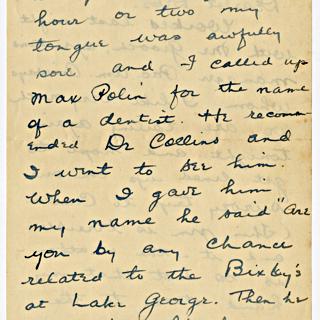 hour or two my
tongue was awfully
sore and I called up
Max Polin for the name
of a dentist. He recomm-
ended Dr Collins and
I went to see him.
When I gave him
my name he said "Are
you by any chance
related to the Bixby's
at Lake George. Then he